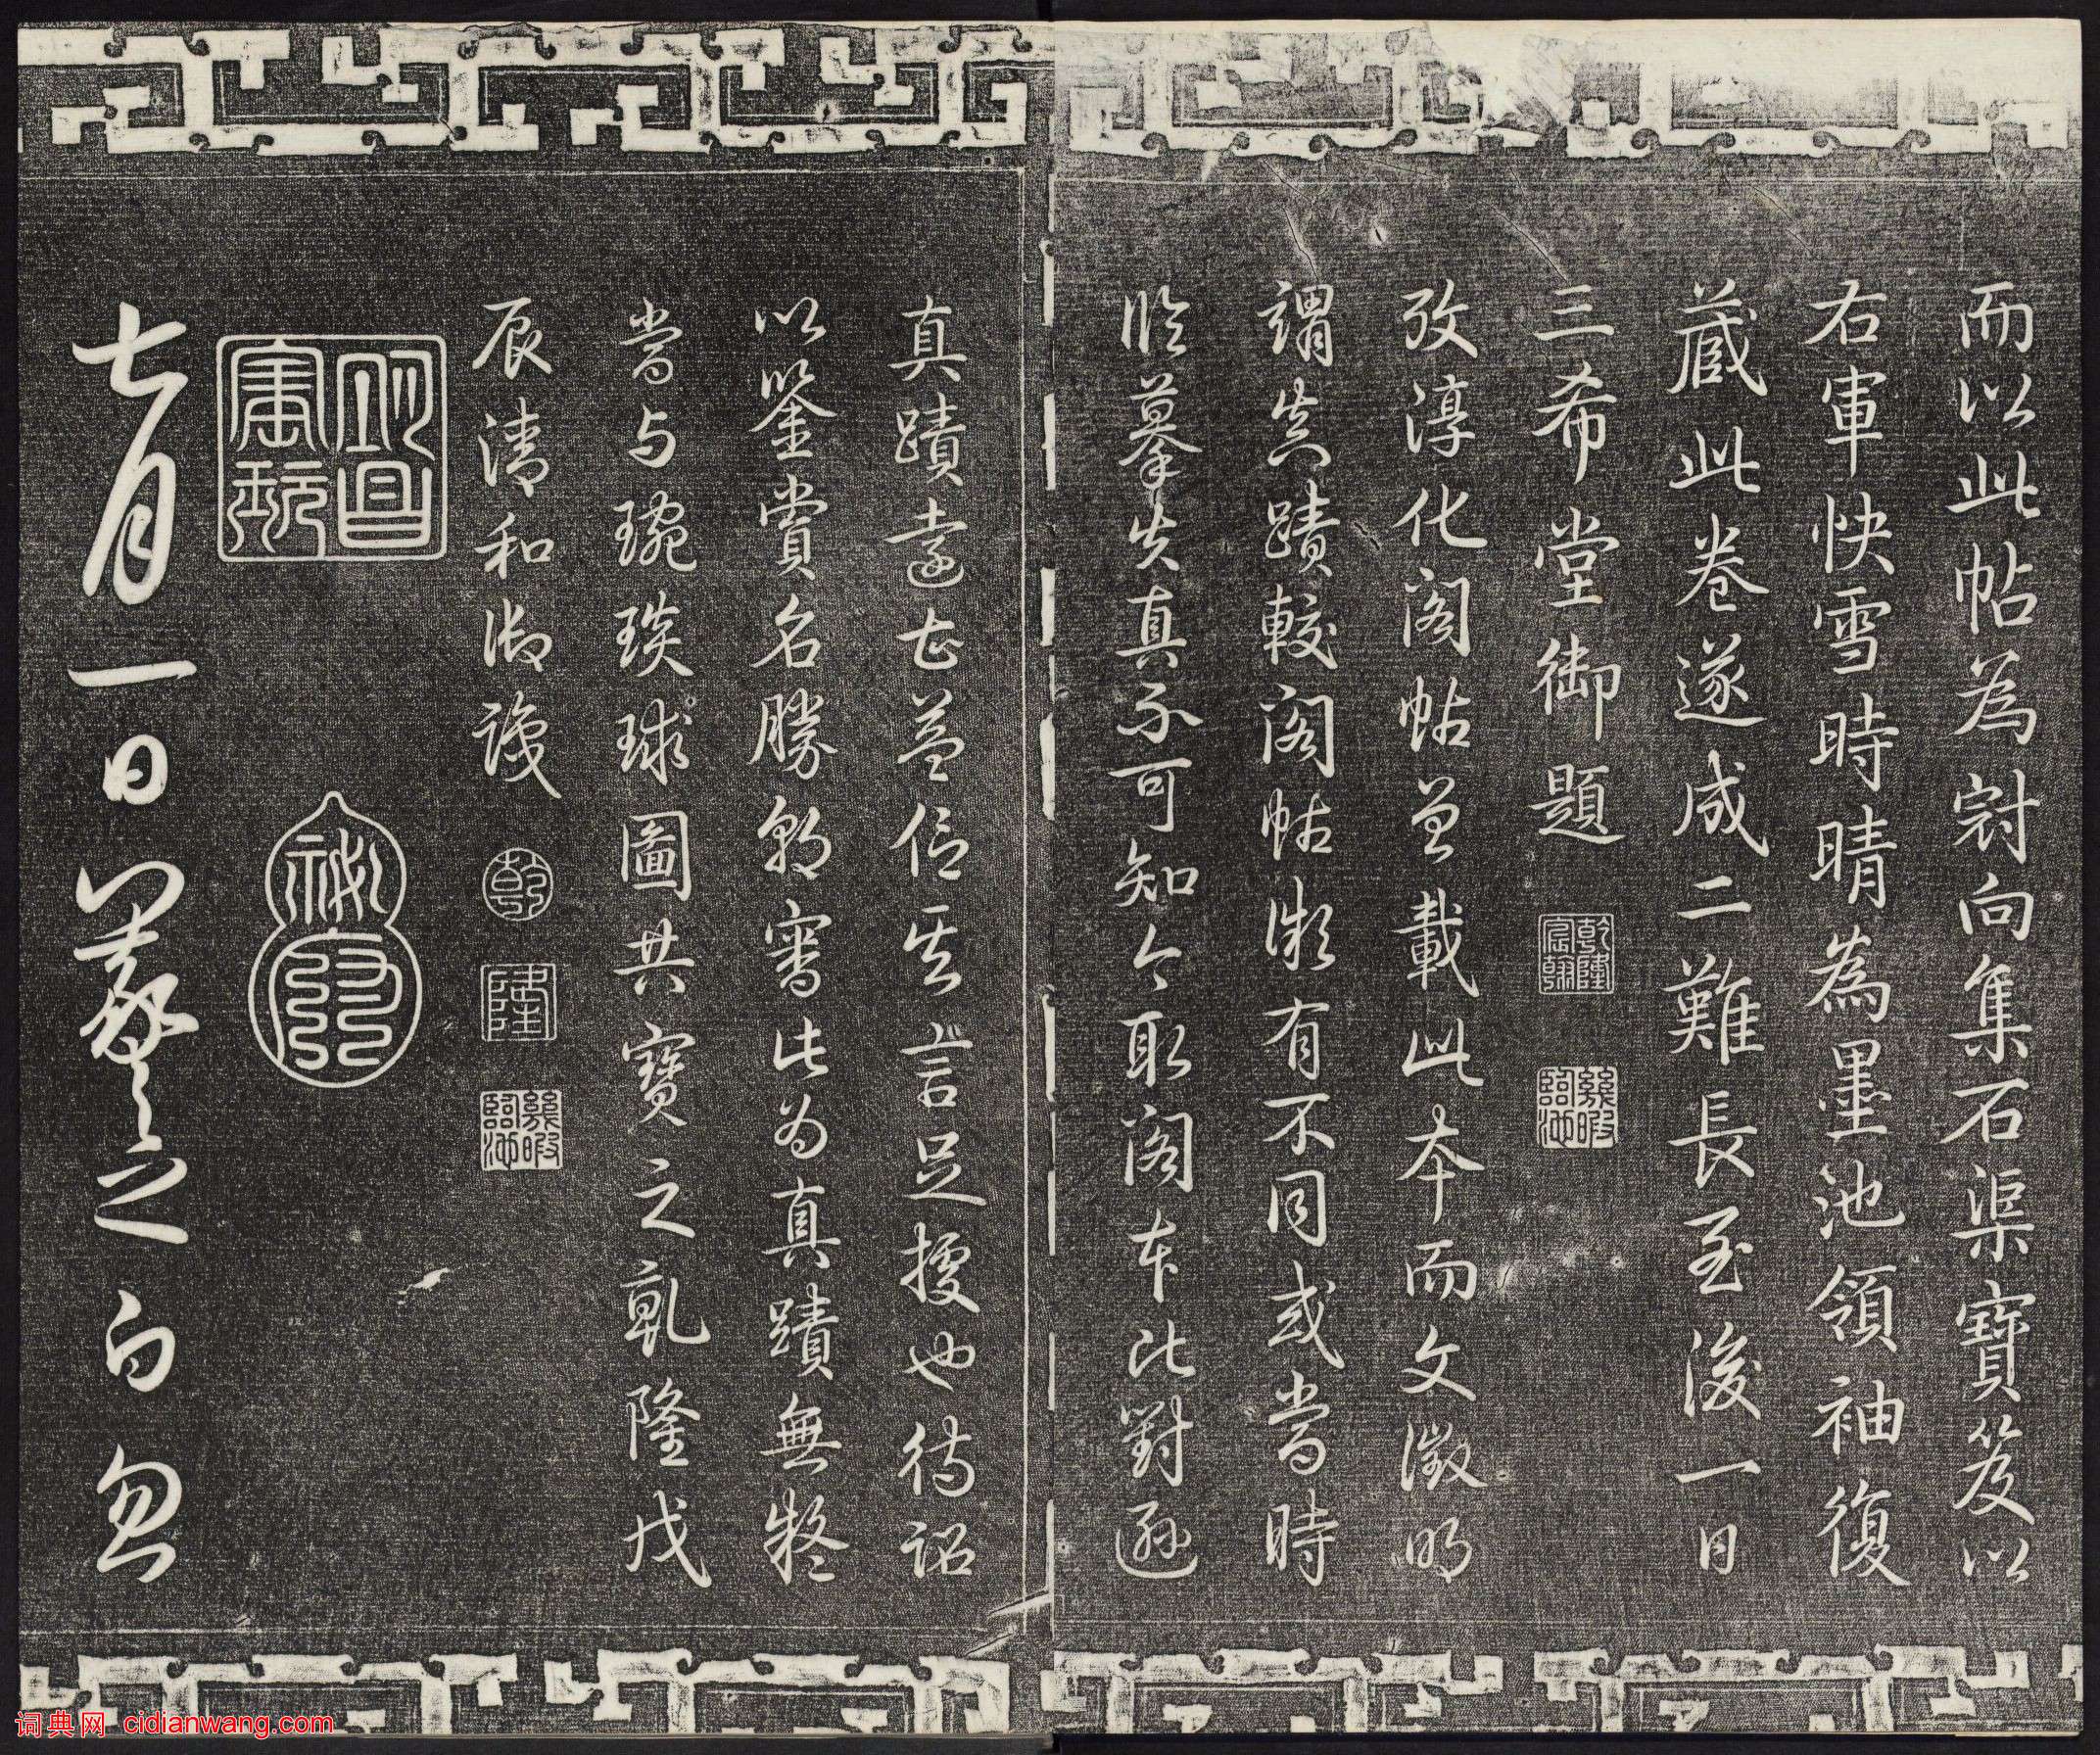 而以此帖為冠向集石渠寶笈以
右軍快雪時晴為墨池領袖復
藏此卷遂成二難長至後一日
三希堂御題
乾隆宸翰
幾暇臨池
攷淳化閣帖曾載此本而文徵明
謂真蹟較閣帖微有不同或當時
臨摹失真不可知今取閣本比對遜
真蹟遠甚益信其言足據也待詔
以鑒賞名勝朝審此為真蹟無疑
當与琬琰球圖共寶之乾隆戊
辰清和御識
乾
隆
幾暇臨池
七月一日羲之白忽
词典网 cidianwang.com